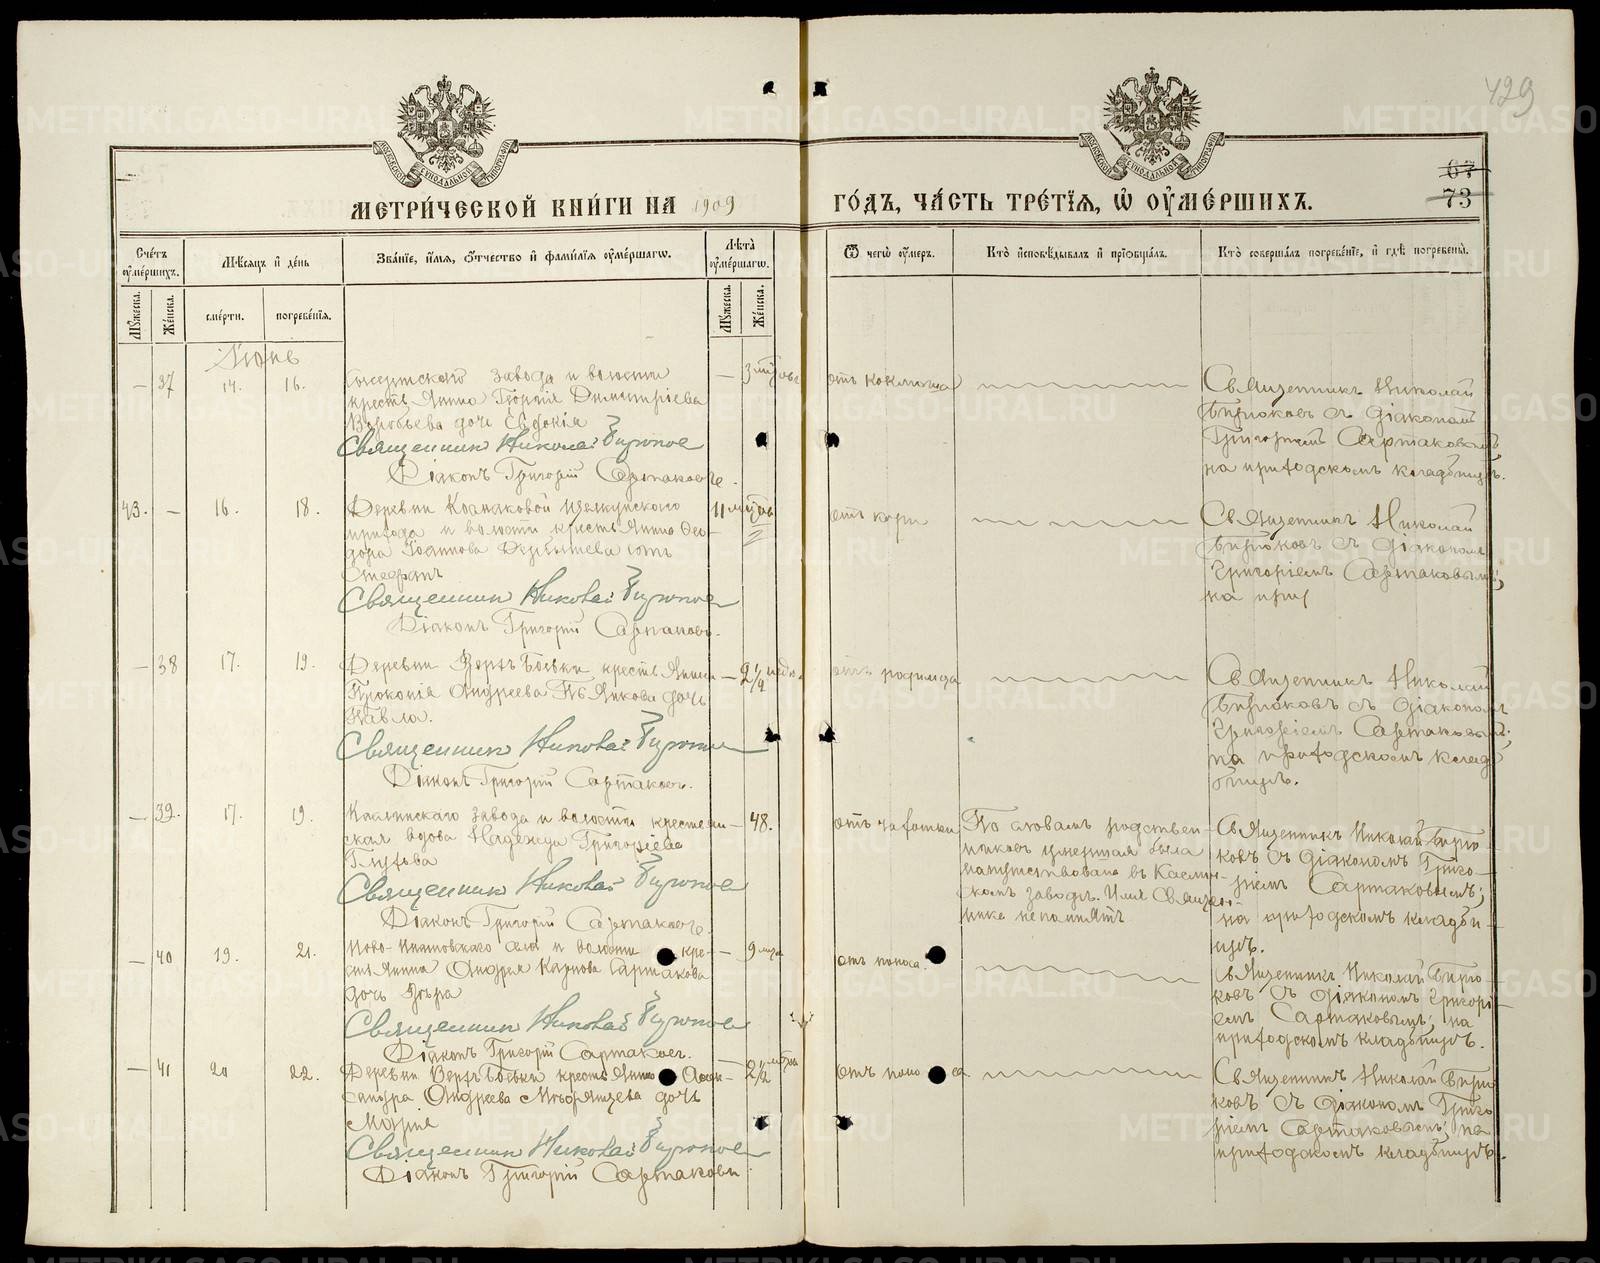 429
67
73
МЕТРИ́ЧЕСКОЙ КНИ́ГИ НА 1909
ГО́ДЪ, ЧА́СТЬ ТРЕ́ТЇѦ, Ѡ҆ ОУ҆МЕ́РШИХЪ.
Сче́тъ оу҆ме́ршихъ.
Мꙋ́жеска.
Же́нска.
Мѣ́сѧцъ и҆ де́нь
сме́рти.
погребе́нїѧ.
Зва́нїе, и҆́мѧ, ѻ҆́тчество и҆ фами́лїѧ оу҆ме́ршагѡ.
Лѣ́та оу҆ме́ршагѡ.
Мꙋ́жеска.
Же́нска.
Ѿ чегѡ̀ оу҆́меръ.
Кто̀ и҆сповѣ́дывалъ и҆ прїѡбща́лъ.
Кто̀ соверша́лъ погребе́нїе, и҆ гдѣ̀ погребены̀.
Іюнь
— 37 14. 16.
завода и волости
крестьянина Георгія Димитріева
дочь Евдокія
Священник Николай Бирюков
Діаконъ Григорій Сартаковъ.
— 3 мѣс
отъ коклюша
Священникъ Николай
Бирюковъ съ діакономъ
Григоріемъ Сартаковымъ
на приходскомъ кладбищѣ.
43. — 16. 18.
Деревни
прихода и волости крестьянина Ѳео-
дора Іоаннова сынъ
Стефанъ
Священник Николай Бирюков
Діаконъ Григорій Сартаковъ.
11 мѣсяц
отъ кори
Священникъ Николай
Бирюковъ съ діакономъ
Григоріемъ Сартаковымъ;
на при
— 38 17. 19.
Деревни Верхъ Боевки крестьянина
Прокопія Андреева дочь
Павла.
Священник Николай Бирюков
Діаконъ Григорій Сартаковъ.
— 2 1/4
отъ родимца
Священникъ Николай
Бирюковъ съ діакономъ
Григоріемъ Сартаковымъ;
на приходскомъ клад-
бищѣ.
— 39. 17. 19.
Каслинскаго завода и волости крестьян-
ская вдова Надежда Григорьева
Священник Николай Бирюков
Діаконъ Григорій Сартаковъ.
— 48.
отъ чахотки
По словамъ родствен-
никовъ умершая была
напутствована въ Каслин-
скомъ заводѣ. Имя Священ-
ника не помнятъ
Священникъ Николай Бирю-
ковъ съ діакономъ Григо-
ріемъ Сартаковымъ;
на приходскомъ кладби-
щѣ.
— 40 19. 21.
Ново-Ипатовскаго села и волости кре-
стьянина Андрея Карпова Сартакова
дочь Вѣра
Священник Николай Бирюков
Діаконъ Григорій Сартаков.
— 9
отъ поноса.
Священникъ Николай Бирю-
ковъ съ діакономъ Григорі-
емъ Сартаковымъ; на
приходскомъ кладбищѣ.
— 41 20 22.
Деревни Верхъ Боевки крестьянина Алек-
сандра Андреева дочь
Марія
Священник Николай Бирюков
Діаконъ Григорій Сартаковъ
— 2 1/2
отъ поноса
Священникъ Николай Бирю-
ковъ съ діакономъ Григо-
ріемъ Сартаковымъ; на
приходскомъ кладбищѣ.
METRIKI.GASO-URAL.RU